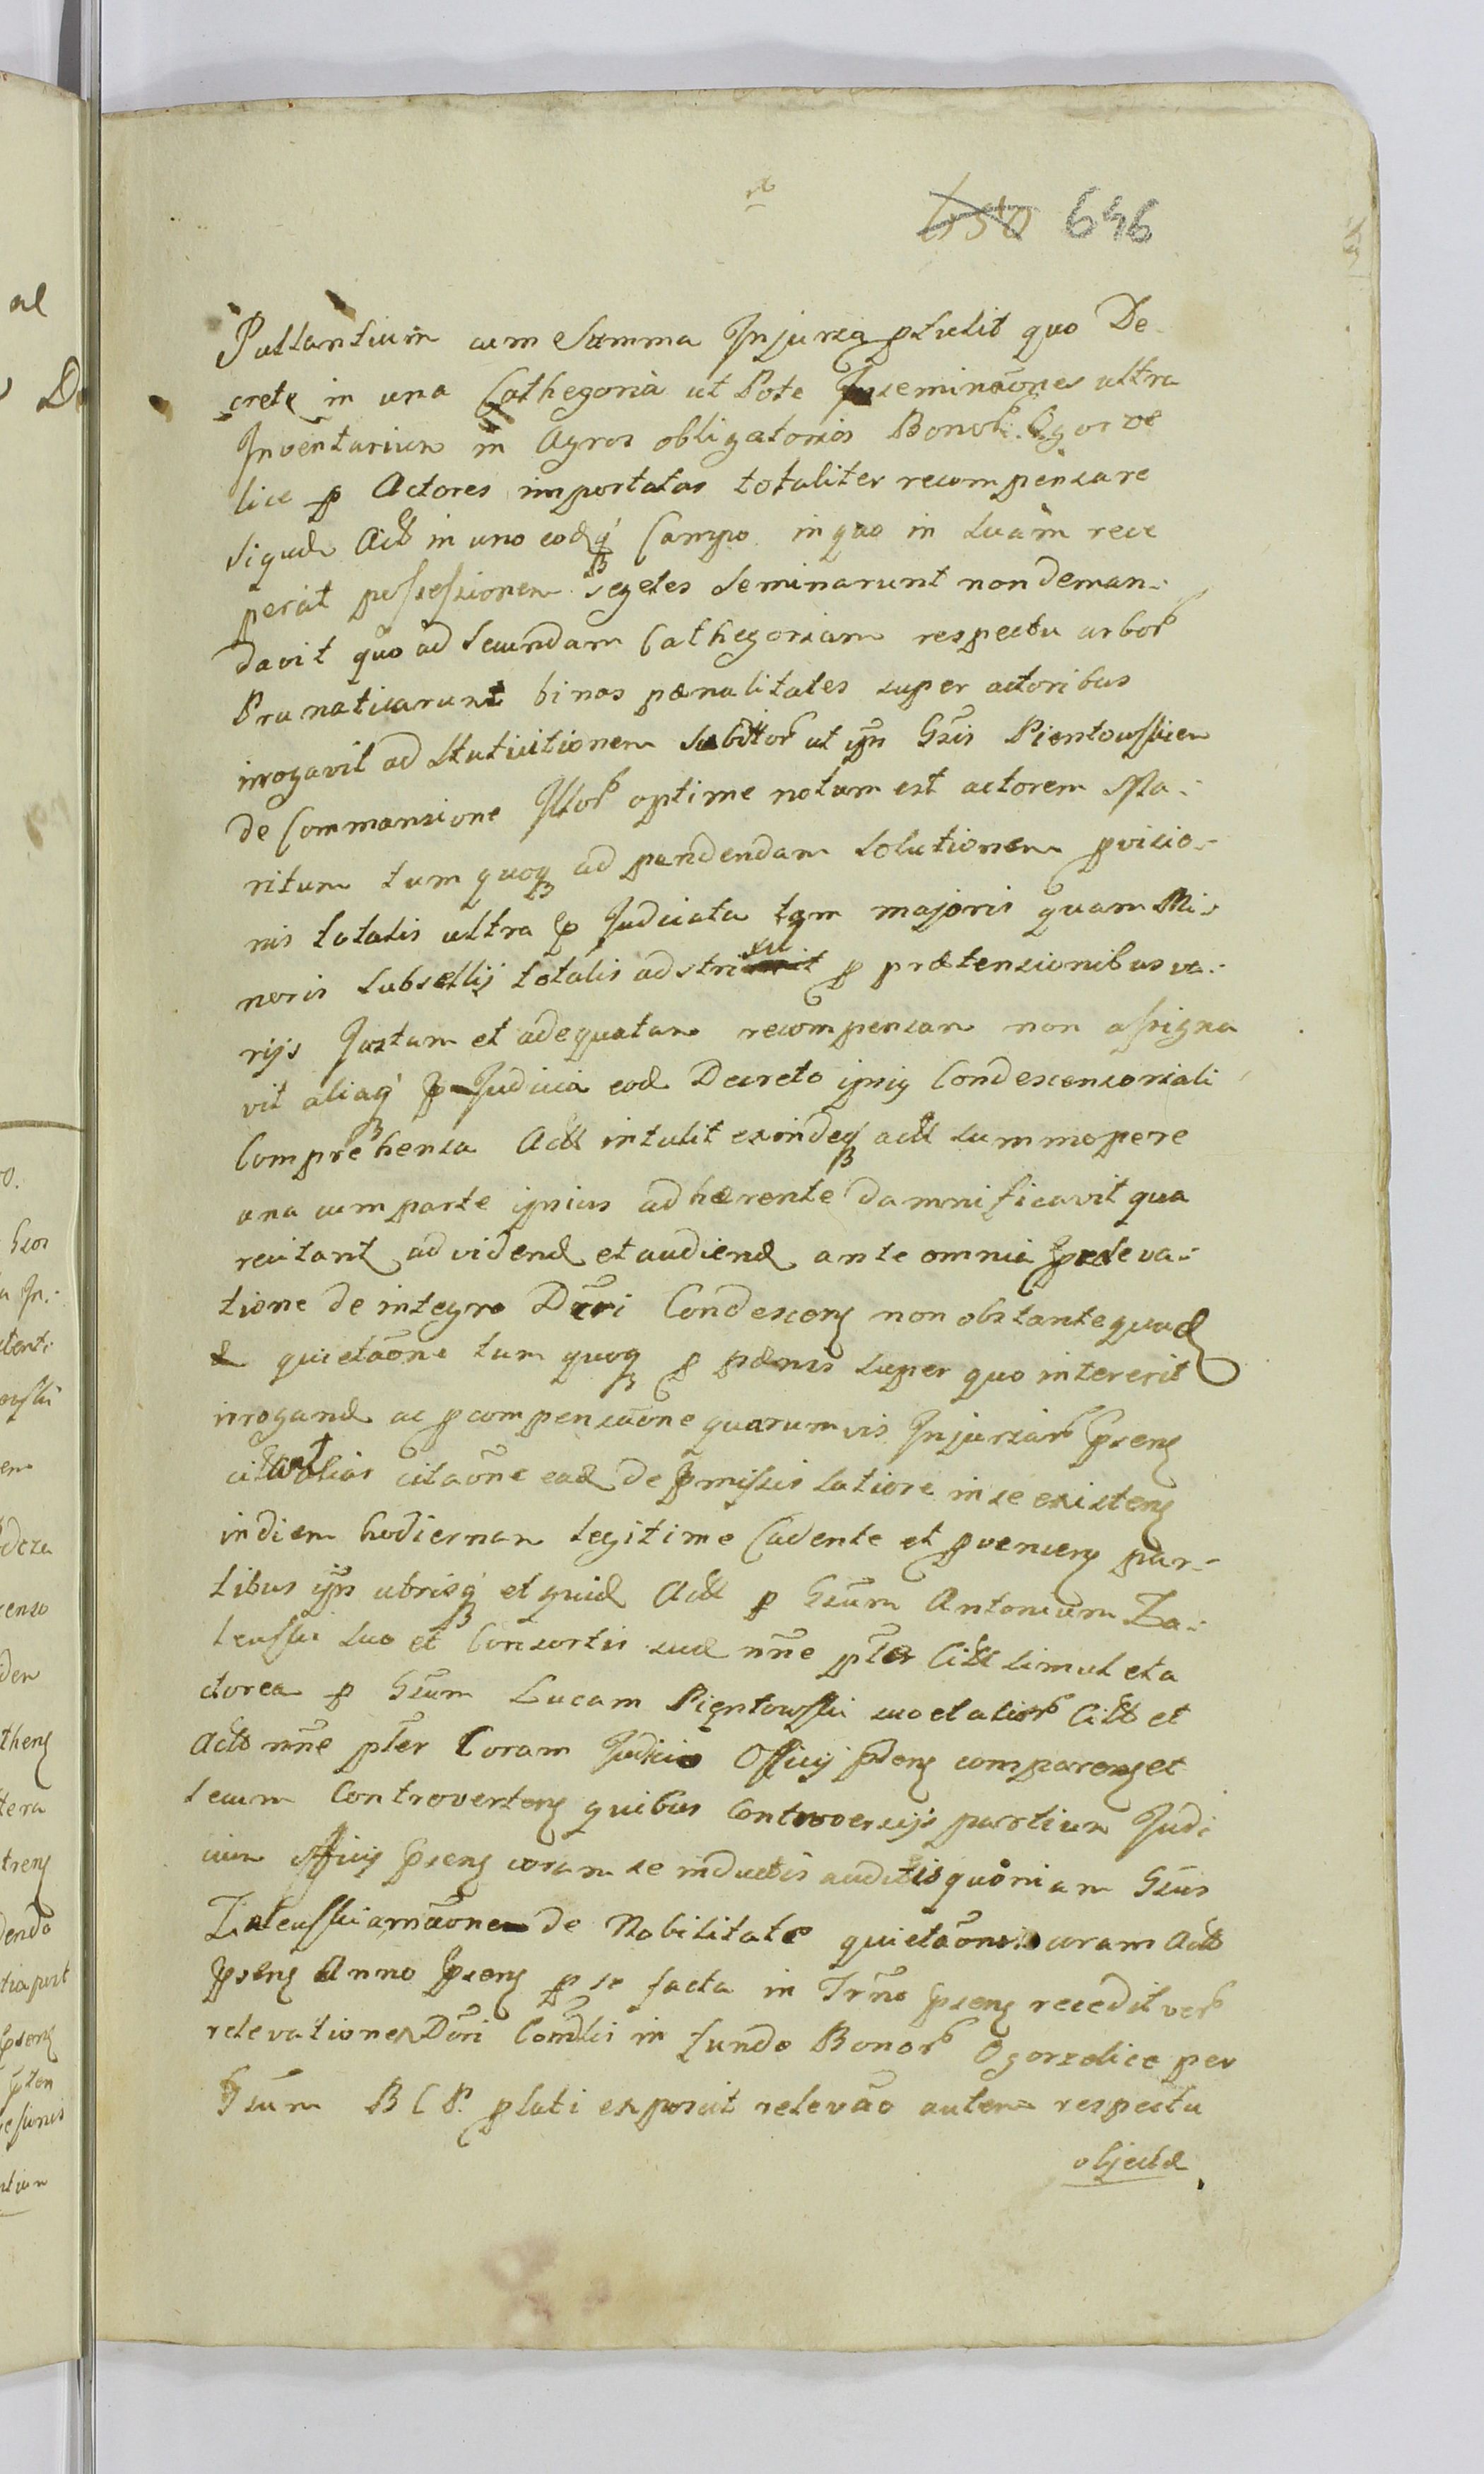 650 646
Pullantium cum Summa Injuria ptulit quo De
creto in una Cathegoria ut Pote Inseminaōnes ultra
Inventarium in Agros obligatorios Bonor. Ogorze
lice p Actores importatas totaliter recompensare
siqud Act in uno eodq Campo in quo in suam rece
perat possessionem segetes seminarunt non deman-
davit quo ad secundam Cathegoriam respectu arbor
Pru naticarunt binas pænalitates super actoribus
irrogavit ad Statuitionem Subditor ut ipn Gsis Pientowskiem
de Commansione Illor optime notum est actorem Ma-
ritum tum quoq ad pendendam Solutionem pvisio-
nis totalis ultra p Judicata tam majoris quam Mi-
noris Subsellij totalis adstrinxit p prætensionibus va-
rijs Justam et adequatam recompensam non assigna
vit aliaq p Judicia eod Decreto ipsiq Condescensoriali
Comprehensa Act intulit exindeq act summopere
una cum parte ipsius adhærente damnificavit qua
recitant ad videnđ et audienđ ante omnia p releva-
tione de integro Dcri Condescens non obstante quad
quietaōne tum quoq p pænis super quo intererit
irroganđ ac p compensaōne quarumvis Injuriar psens
citat alias citaōne ead de pmissis latiore in se existens
in diem hodiernam legitime Cadente et pveniens par-
tibus ipn utrisq et quid Act p Gsum Antonium Za-
leuski suo et Consortis suæ nne pter Citt simul et a
ctorea p Gsum Lucam Pientowski suo et alior Citt et
Act nne pter Coram Judicio Officij psens comparens et
secum Controvertens quibus Controversijs partium Judi
cium Officij psens coram se inductis auditis quoniam Gsus
Zaleuski amaōnem de Nobilitate quietaōnis coram Act
psens Anno psens p se facta in Trno psens recedit ver
relevationem Dcri Comdlis in fundo Bonor Ogorzelice per
Gsum B C P. plati exposcit relevāo autem respectu
objectæ